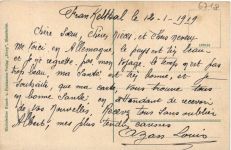 Frankelthal le 12-1-1919
Chere Soeur, Cheres Nieces, et Chers neveux
Me voici en Allemagne le pays est très beau
et je regrette pas mon voyage, le temps n'est pas
trop beau, ma Santé est très bonne, et je
Souhaite, que ma carte vous trouve tous
en bonne Santé, en attendant de recevoir
de vos Nouvelles, Recevez tous sans oublier
Albert, mes plus tendre caresses
Azan Louis